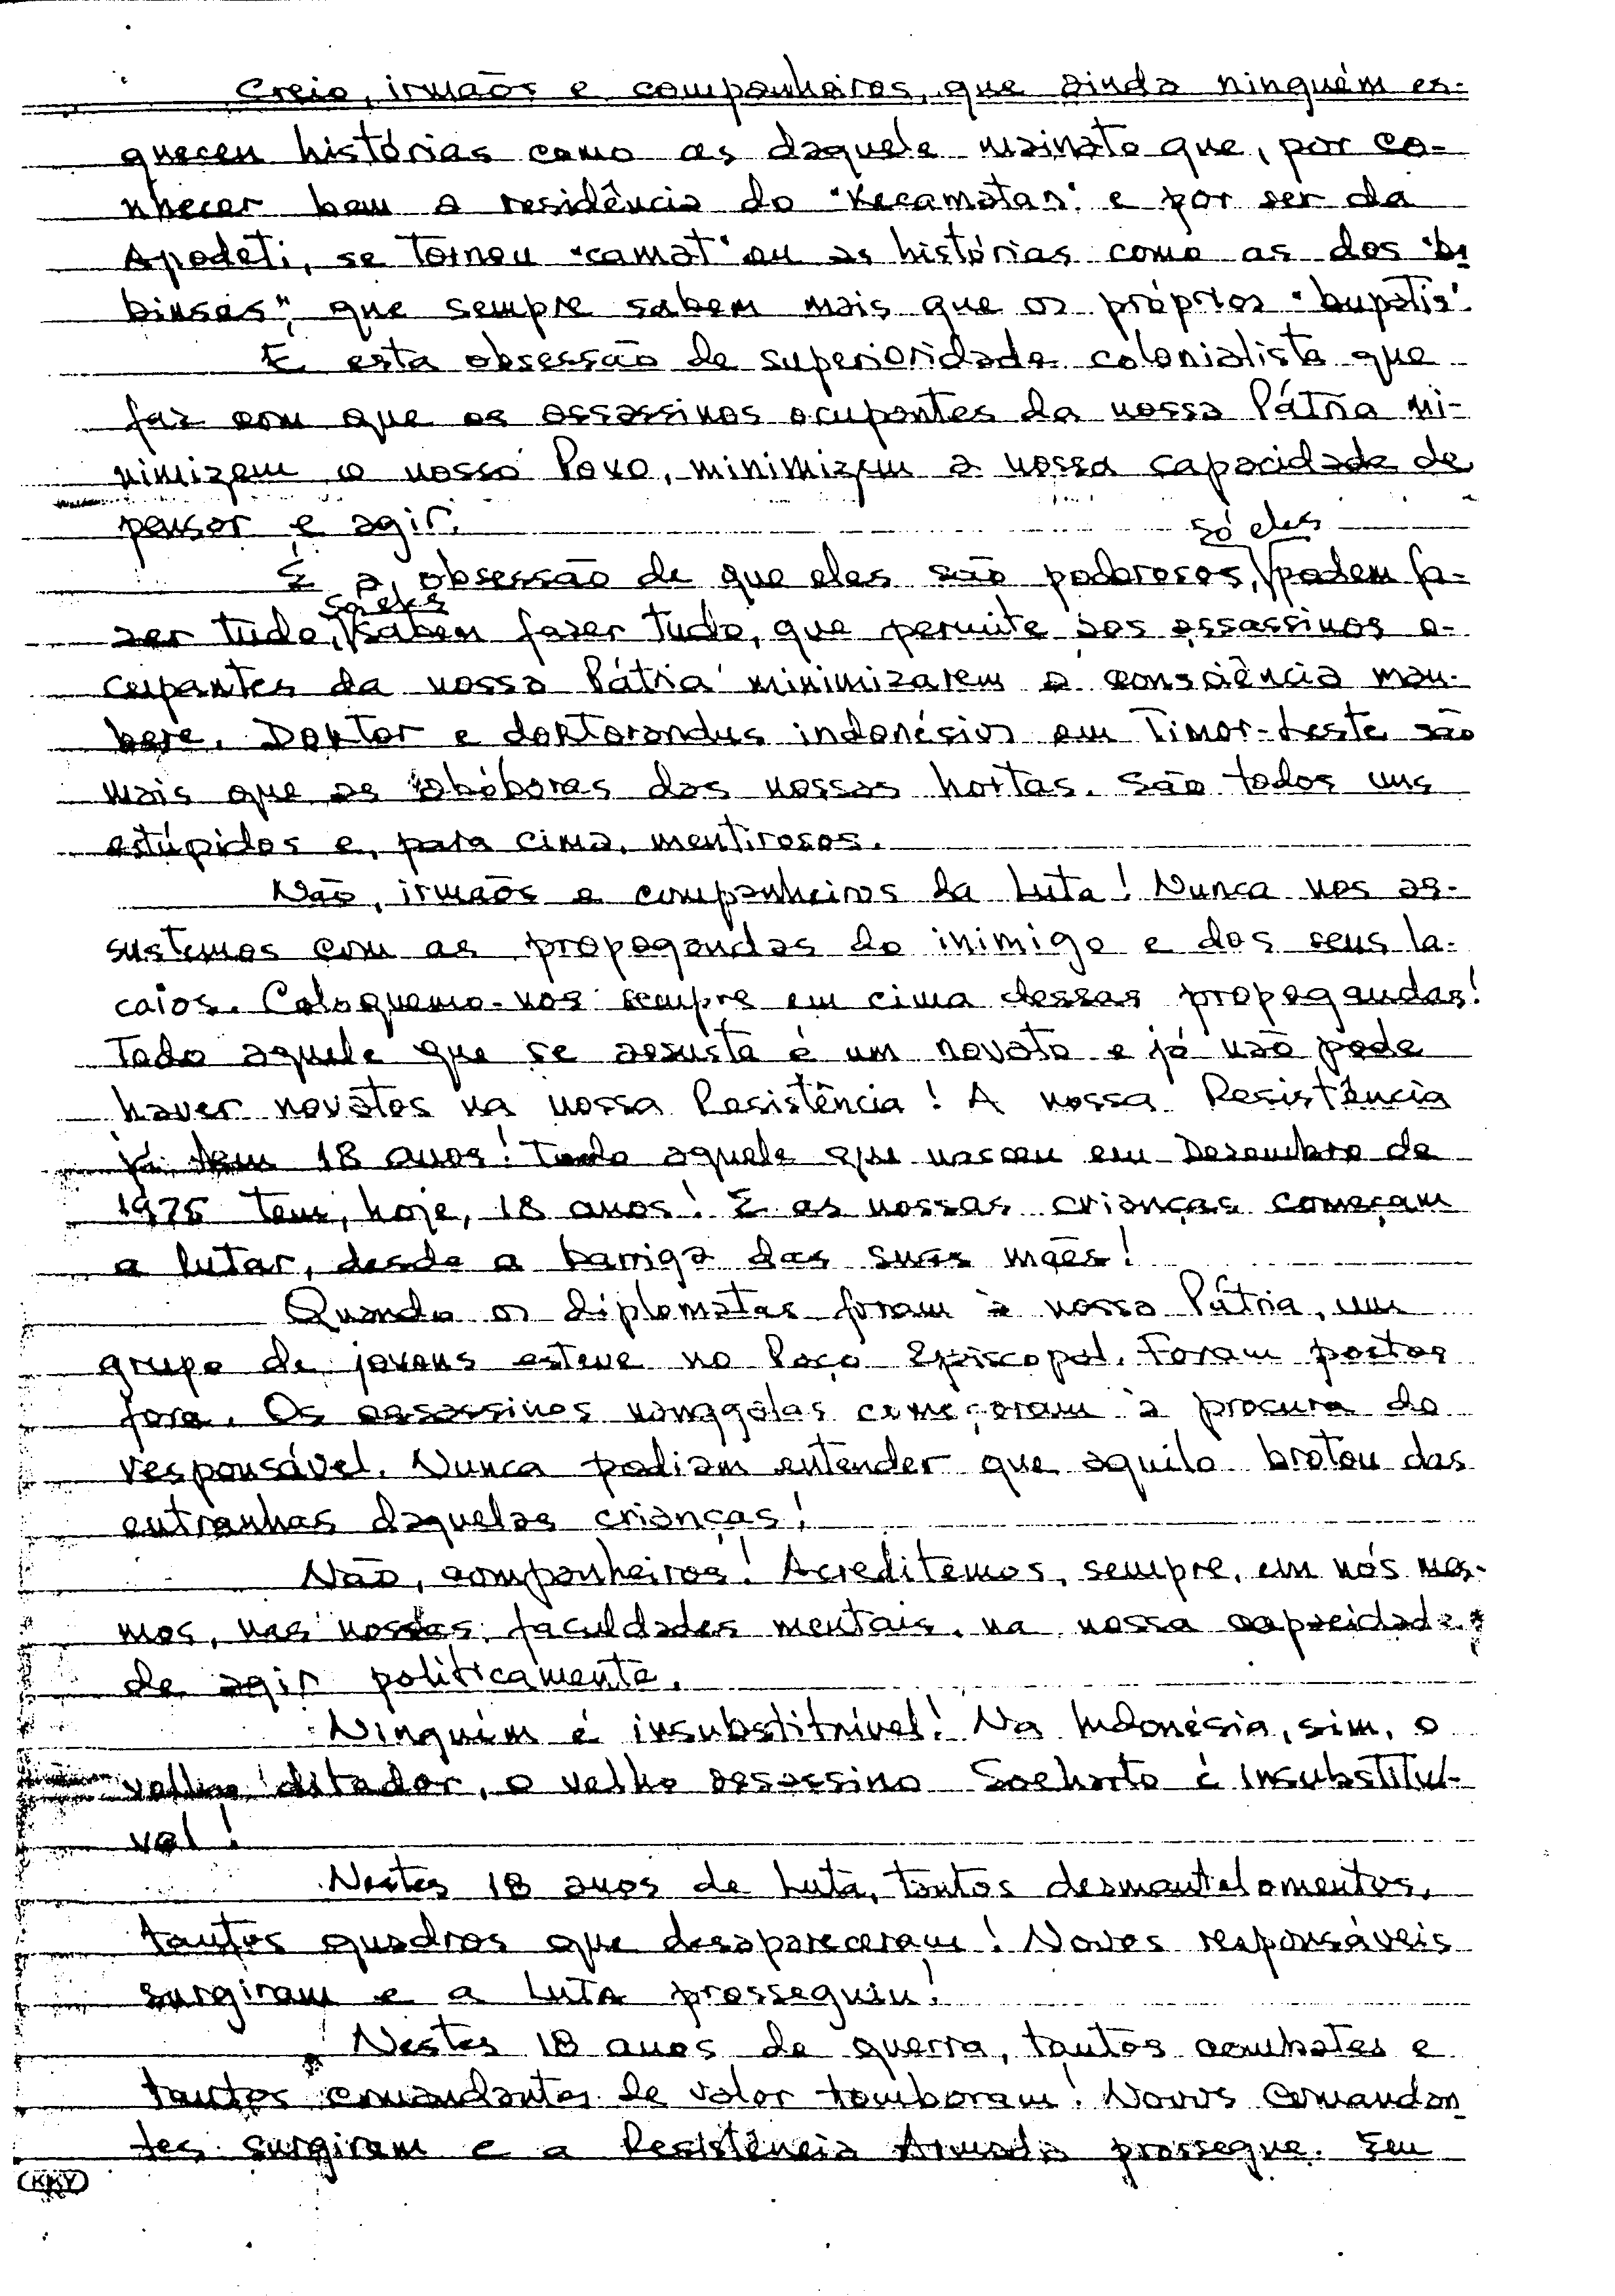 Creio, irmãos e companheiros, que ainda ninguém es-
queceu histórias como as daquele mainato que, por co-
nhecer bem a residência do "Kecamatan" e por ser da
Apodeti, se tornou "camat" ou as histórias como as dos "ba
binsas", que sempre sabem mais que os próprios "bupatis".
É esta obsessão de superioridade colonialista que
faz com que os assassinos ocupantes da nossa Pátria mi-
nimizem o nosso Povo, minimizem a nossa capacidade de
pensar e agir.
É a obsessão de que eles são poderosos, só eles podem fa-
zer tudo, só eles sabem fazer tudo, que permite aos assassinos o-
cupantes da nossa Pátria minimizarem a consciência mau-
bere. Doktor e doktorandus indonésios em Timor-Leste são
mais que as abóboras das nossas hortas. São todos uns
estúpidos e, para cima, mentirosos.
Não, irmãos e companheiros da Luta! Nunca nos as-
sustemos com as propagandas do inimigo e dos seus la-
caios. Coloquemo-nos sempre em cima dessas propagandas!
Todo aquele que se assusta é um novato e já não pode
haver novatos na nossa Resistência! A nossa Resistência
já tem 18 anos! Todo aquele que nasceu em Dezembro de
1975 tem, hoje, 18 anos! E as nossas crianças começam
a lutar, desde a barriga das suas mães!
Quando os diplomatas foram à nossa Pátria, um
grupo de jovens esteve no Paço Episcopal. Foram postos
fora. Os assassinos nanggalas começaram à procura do
responsável. Nunca podiam entender que aquilo brotou das
entranhas daquelas crianças!
Não, companheiros! Acreditemos, sempre, em nós mes-
mos, nas nossas faculdades mentais, na nossa capacidade
de agir politicamente.
Ninguém é insubstituível! Na Indonésia, sim, o
velho ditador, o velho assassino Soeharto é insubstituí-
vel!
Nestes 18 anos de Luta, tantos desmantelamentos,
tantos quadros que desapareceram! Novos responsáveis
surgiram e a Luta prosseguiu!
Nestes 18 anos de guerra, tantos combates e
tantos comandantes de valor tombaram! Novos comandan
tes surgiram e a Resistência Armada prossegue. Em
(KKY)